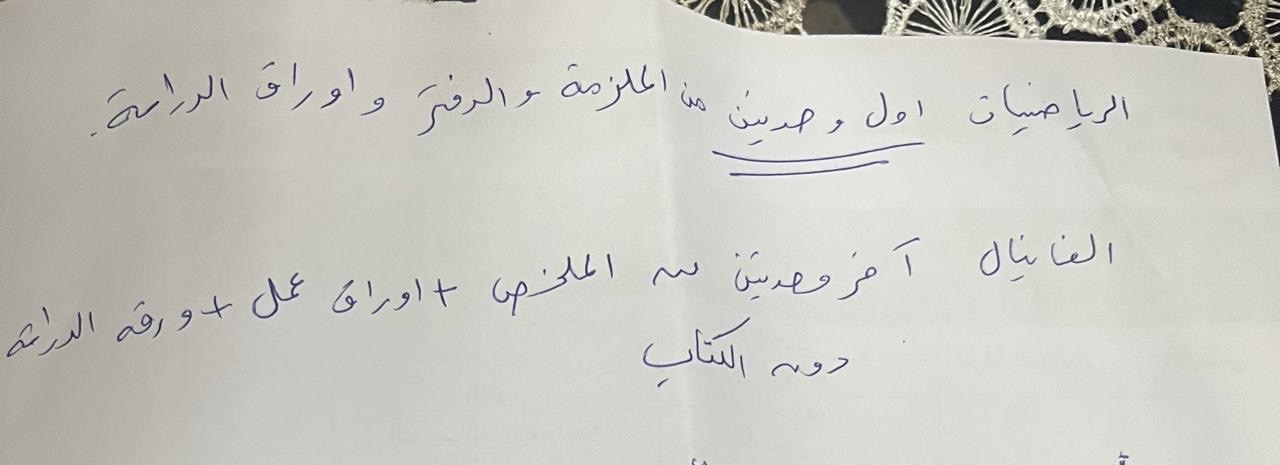 الرياضيات اول وحدتين من الملزمة والدفتر واوراق الدراسة.
الفاينال آخر وحدتين من الملخص + اوراق عمل + ورقه الدراسة
دون الكتاب